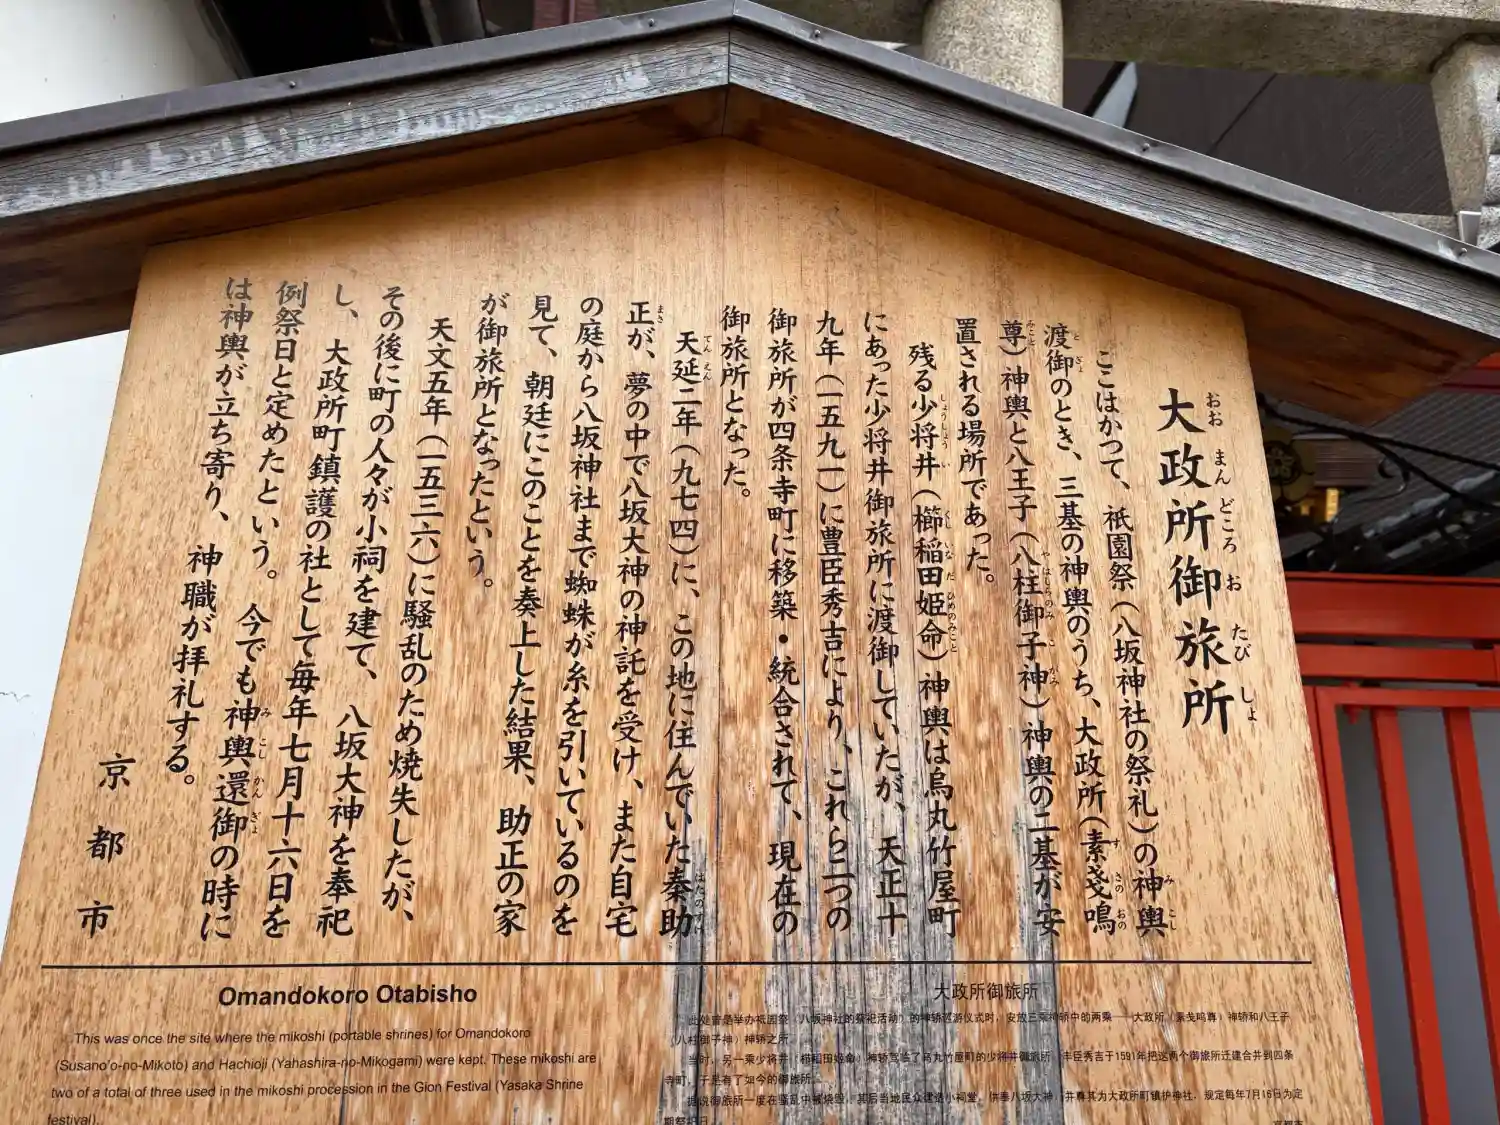 大政所御旅所
ここはかつて、祇園祭（八坂神社の祭礼）の神輿
渡御のとき、三基の神輿のうち、大政所（素戔鳴
尊）神輿と八王子（八柱御子神）神輿の二基が安
置される場所であった。
残る少将井（櫛稲田姫命）神輿は烏丸竹屋町
にあった少将井御旅所に渡御していたが、天正十
九年（一五九一）に豊臣秀吉により、これら二つの
御旅所が四条寺町に移築・統合されて、現在の
御旅所となった。
天延二年（九七四）に、この地に住んでいた秦助
正が、夢の中で八坂大神の神託を受け、また自宅
の庭から八坂神社まで蜘蛛が糸を引いているのを
見て、朝廷にこのことを奏上した結果、助正の家
が御旅所となったという。
天文五年（一五三六）に騒乱のため焼失したが、
その後に町の人々が小祠を建て、八坂大神を奉祀
し、大政所町鎮護の社として毎年七月十六日を
例祭日と定めたという。今でも神輿還御の時に
は神輿が立ち寄り、神職が拝礼する。
京都市
Omandokoro Otabisho
This was once the site where the mikoshi (portable shrines) for Omandokoro
(Susano'o-no-Mikoto) and Hachioji (Yahashira-no-Mikogami) were kept. These mikoshi are
two of a total of three used in the mikoshi procession in the Gion Festival (Yasaka Shrine
festival).
大政所御旅所
此处曾是举办祇园祭（八坂神社的祭祀活动）的神轿巡游仪式时，安放三乘神轿中的两乘——大政所（素戋鸣尊）神轿和八王子
（八柱御子神）神轿之所。
当时，另一乘少将井（栉稻田姬命）神轿驾临了乌丸竹屋町的少将井御旅所，丰臣秀吉于1591年把这两个御旅所迁建合并到四条
寺町，于是有了如今的御旅所。
据说御旅所一度在骚乱中被烧毁，其后当地民众建造小祠堂，供奉八坂大神，并尊其为大政所町镇护神社，规定每年7月16日为定
期祭祀日。